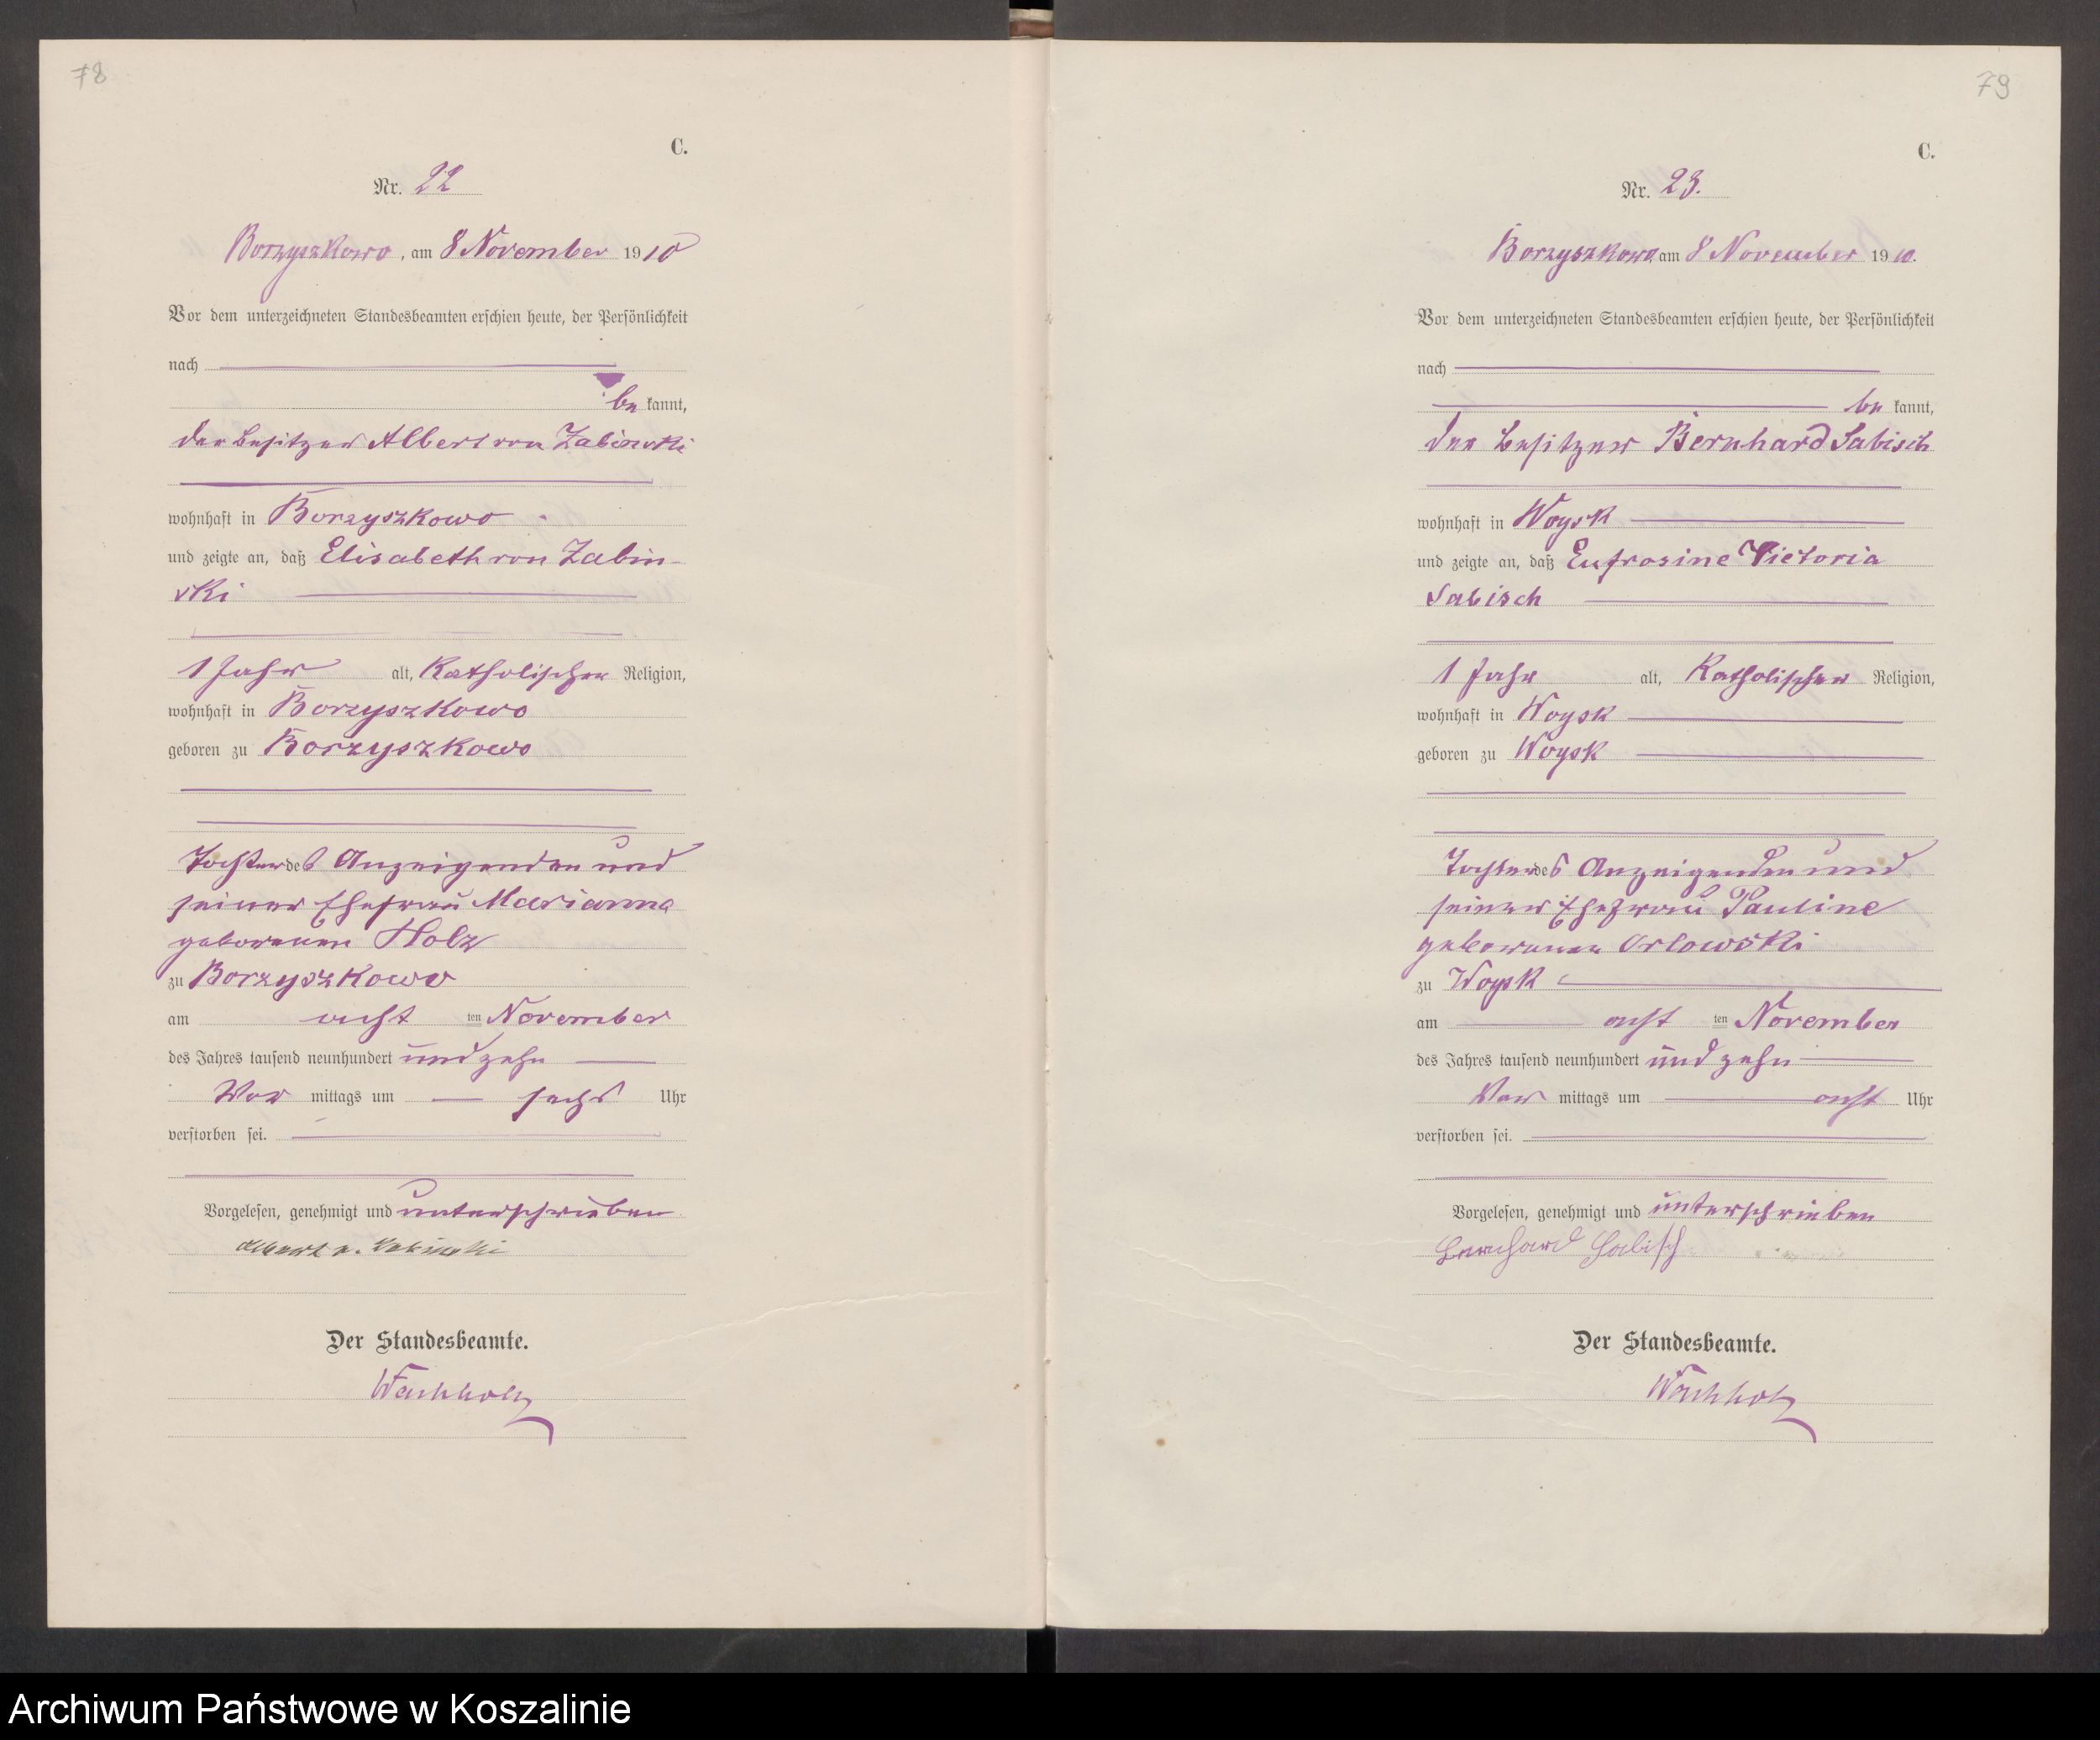 78
C.
Nr. 22
Borzyszkowo, am 8 November 1910
Vor dem unterzeichneten Standesbeamten erschien heute, der Persönlichkeit
nach
be kannt,
der Besitzer Albert von Zabinski
wohnhaft in Borzyszkowo
und zeigte an, daß Elisabeth von Zabin-
ski
1 Jahr alt, katholischer Religion,
wohnhaft in Borzyszkowo
geboren zu Borzyszkowo
Tochter des Anzeigenden und
seiner Ehefrau Marianna
geborenen Holz
zu Borzyszkowo
am acht ten November
des Jahres tausend neunhundert und zehn
Vor mittags um sechs Uhr
verstorben sei.
Vorgelesen, genehmigt und unterschrieben
Albert v. Zabinski
Der Standesbeamte.
Wachholz
79
C.
Nr. 23.
Borzyszkowo am 8 November 1910.
Vor dem unterzeichneten Standesbeamten erschien heute, der Persönlichkeit
nach
be kannt,
der Besitzer Bernhard Sabisch
wohnhaft in Woysk
und zeigte an, daß Eufrosine Victoria
Sabisch
1 Jahr alt, Katholischer Religion,
wohnhaft in Woysk
geboren zu Woysk
Tochter des Anzeigenden und
seiner Ehefrau Pauline
geborenen Orlowski
zu Woysk
am acht ten November
des Jahres tausend neunhundert und zehn
Vor mittags um acht Uhr
verstorben sei.
Vorgelesen, genehmigt und unterschrieben
Bernhard Sabisch
Der Standesbeamte.
Wachholz
Archiwum Państwowe w Koszalinie